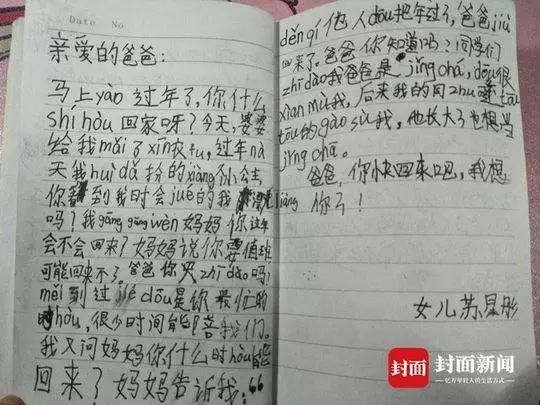 Date No
亲爱的爸爸：
马上yào过年了，你什么
shí hòu 回家呀？今天，婆婆
给我mǎi了xīn衣fu，过年nà
天我huì dǎ扮的xiàng小公主
你看到我时会jué的我漂liàng
吗？我gāng gāng wèn妈妈你这年
会不会回来？妈妈说你要值班
可能回来不了。爸爸你zhī dào吗？
měi到过jié dōu是你最忙的
时hòu，很少时间能陪我们。
我又问妈妈你什么时hòu能
回来？妈妈告诉我：“
děng 他人dōu把年过了，爸爸jiù
回来了。爸爸你知道吗？同学们
zhī dào我爸爸是jǐng chá，dōu很
xiàn mù我，后来我的同zhuō tōu
tōu的gào sù我，他长大了也想当
jǐng chá。
爸爸，你快回来吧，我想
你了！
女儿苏星彤
封面 封面新闻
亿万年轻人的生活方式